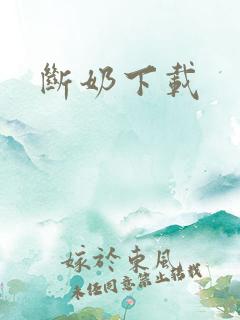 斷奶下載
嫁於東風
未經同意禁止轉載